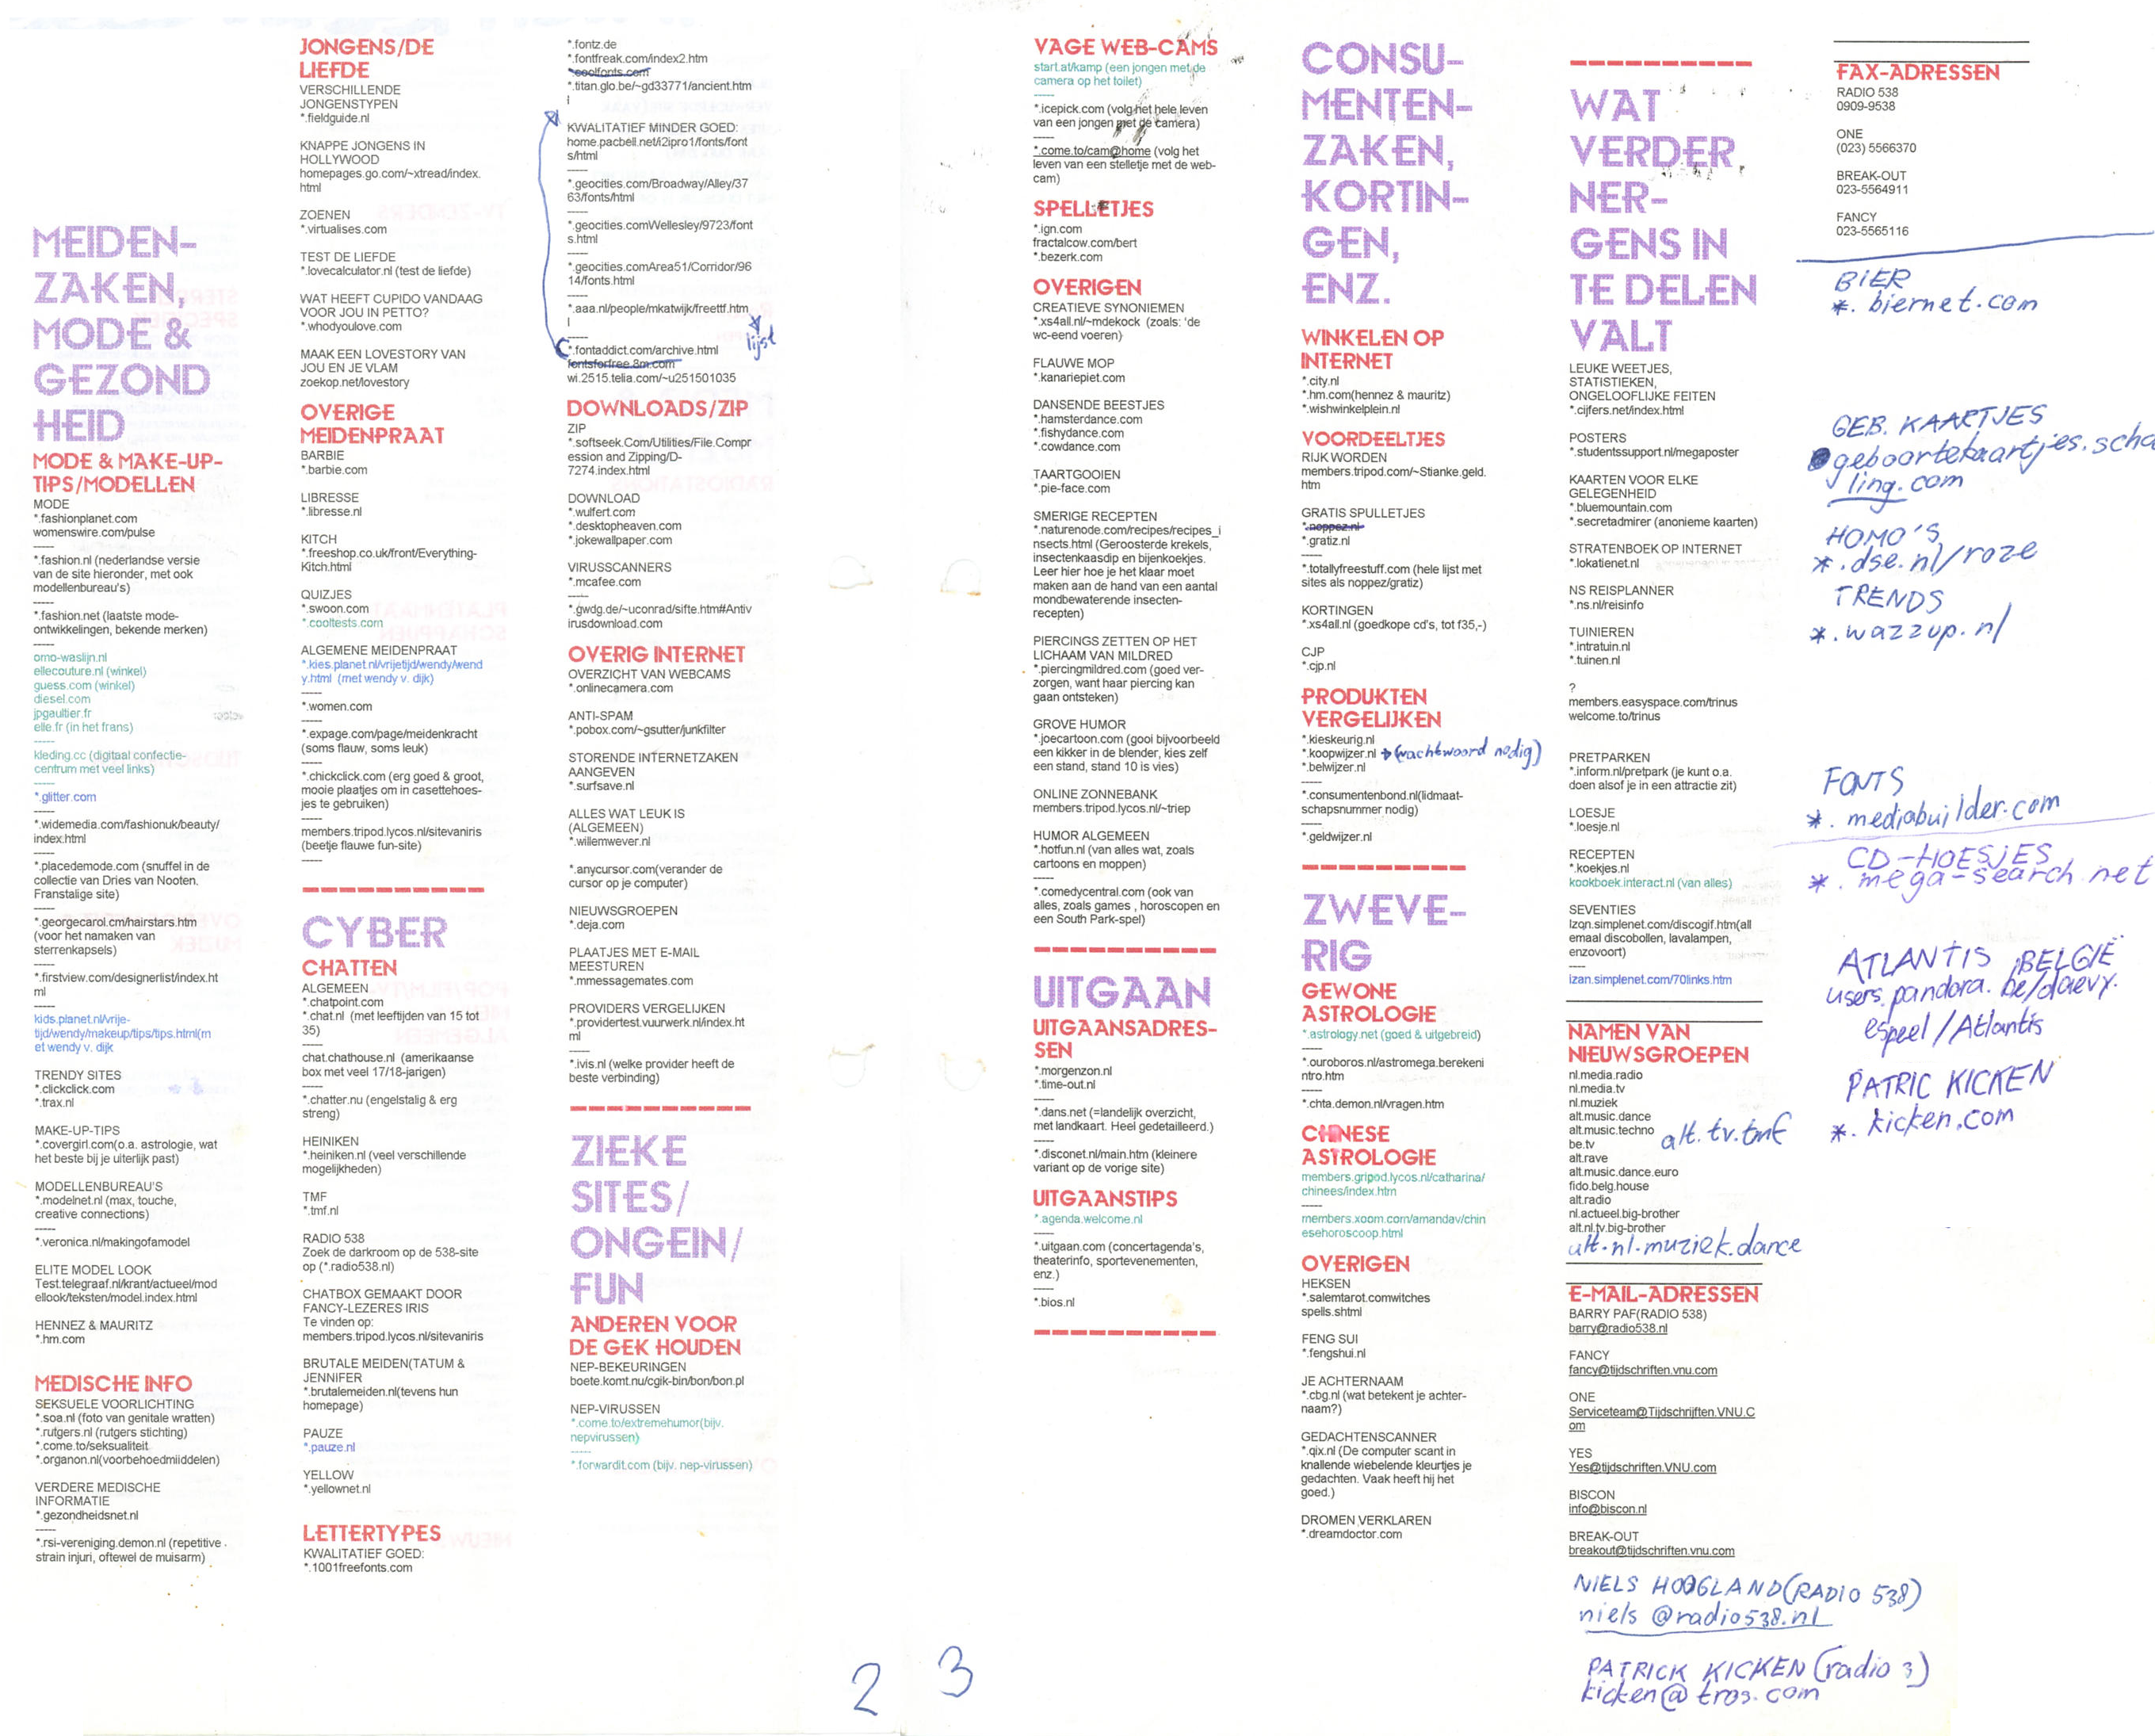 MEIDEN-
ZAKEN,
MODE &
GEZOND
HEID
MODE & MAKE-UP-
TIPS/MODELLEN
MODE
*.fashionplanet.com
womenswire.com/pulse
-----
*.fashion.nl (nederlandse versie
van de site hieronder, met ook
modellenbureau's)
-----
*.fashion.net (laatste mode-
ontwikkelingen, bekende merken)
-----
omo-waslijn.nl
ellecouture.nl (winkel)
guess.com (winkel)
diesel.com
jpgaultier.fr
elle.fr (in het frans)
-----
kleding.cc (digitaal confectie-
centrum met veel links)
-----
*.glitter.com
-----
*.widemedia.com/fashionuk/beauty/
index.html
-----
*.placedemode.com (snuffel in de
collectie van Dries van Nooten.
Franstalige site)
-----
*.georgecarol.com/hairstars.htm
(voor het namaken van
sterrenkapsels)
-----
*.firstview.com/designerlist/index.ht
ml
-----
kids.planet.nl/vrije-
tijd/wendy/makeup/tips/tips.html(m
et wendy v. dijk
TRENDY SITES
*.clickclick.com
*.trax.nl
MAKE-UP-TIPS
*.covergirl.com(o.a. astrologie, wat
het beste bij je uiterlijk past)
MODELLENBUREAU'S
*.modelnet.nl (max, touche,
creative connections)
-----
*.veronica.nl/makingofamodel
ELITE MODEL LOOK
Test.telegraaf.nl/krant/actueel/mod
ellook/teksten/model.index.html
HENNEZ & MAURITZ
*.hm.com
MEDISCHE INFO
SEKSUELE VOORLICHTING
*.soa.nl (foto van genitale wratten)
*.rutgers.nl (rutgers stichting)
*.come.to/seksualiteit
*.organon.nl(voorbehoedmiiddelen)
VERDERE MEDISCHE
INFORMATIE
*.gezondheidsnet.nl
-----
*.rsi-vereniging.demon.nl (repetitive
strain injuri, oftewel de muisarm)
JONGENS/DE
LIEFDE
VERSCHILLENDE
JONGENSTYPEN
*.fieldguide.nl
KNAPPE JONGENS IN
HOLLYWOOD
homepages.go.com/~xtread/index.
html
ZOENEN
*.virtualises.com
TEST DE LIEFDE
*.lovecalculator.nl (test de liefde)
WAT HEEFT CUPIDO VANDAAG
VOOR JOU IN PETTO?
*.whodyoulove.com
MAAK EEN LOVESTORY VAN
JOU EN JE VLAM
zoekop.net/lovestory
OVERIGE
MEIDENPRAAT
BARBIE
*.barbie.com
LIBRESSE
*.libresse.nl
KITCH
*.freeshop.co.uk/front/Everything-
Kitch.html
QUIZJES
*.swoon.com
*.cooltests.com
ALGEMENE MEIDENPRAAT
*.kies.planet.nl/vrijetijd/wendy/wend
y.html  (met wendy v. dijk)
-----
*.women.com
-----
*.expage.com/page/meidenkracht
(soms flauw, soms leuk)
-----
*.chickclick.com (erg goed & groot,
mooie plaatjes om in casettehoes-
jes te gebruiken)
-----
members.tripod.lycos.nl/sitevaniris
(beetje flauwe fun-site)
-----
CYBER
CHATTEN
ALGEMEEN
*.chatpoint.com
*.chat.nl  (met leeftijden van 15 tot
35)
-----
chat.chathouse.nl  (amerikaanse
box met veel 17/18-jarigen)
-----
*.chatter.nu (engelstalig & erg
streng)
HEINIKEN
*.heiniken.nl (veel verschillende
mogelijkheden)
TMF
*.tmf.nl
RADIO 538
Zoek de darkroom op de 538-site
op (*.radio538.nl)
CHATBOX GEMAAKT DOOR
FANCY-LEZERES IRIS
Te vinden op:
members.tripod.lycos.nl/sitevaniris
BRUTALE MEIDEN(TATUM &
JENNIFER
*.brutalemeiden.nl(tevens hun
homepage)
PAUZE
*.pauze.nl
YELLOW
*.yellownet.nl
LETTERTYPES
KWALITATIEF GOED:
*.1001freefonts.com
*.fontz.de
*.fontfreak.com/index2.htm
*.coolfonts.com
*.titan.glo.be/~gd33771/ancient.htm
l
KWALITATIEF MINDER GOED:
home.pacbell.net/i2ipro1/fonts/font
s/html
-----
*.geocities.com/Broadway/Alley/37
63/fonts/html
-----
*.geocities.comWellesley/9723/font
s.html
-----
*.geocities.comArea51/Corridor/96
14/fonts.html
-----
*.aaa.nl/people/mkatwijk/freettf.htm
l
lijst
-----
*.fontaddict.com/archive.html
fontsforfree.8m.com
wi.2515.telia.com/~u251501035
DOWNLOADS/ZIP
ZIP
*.softseek.Com/Utilities/File.Compr
ession and Zipping/D-
7274.index.html
DOWNLOAD
*.wulfert.com
*.desktopheaven.com
*.jokewallpaper.com
VIRUSSCANNERS
*.mcafee.com
-----
*.gwdg.de/~uconrad/sifte.htm#Antiv
irusdownload.com
OVERIG INTERNET
OVERZICHT VAN WEBCAMS
*.onlinecamera.com
ANTI-SPAM
*.pobox.com/~gsutter/junkfilter
STORENDE INTERNETZAKEN
AANGEVEN
*.surfsave.nl
ALLES WAT LEUK IS
(ALGEMEEN)
*.willemwever.nl
*.anycursor.com(verander de
cursor op je computer)
NIEUWSGROEPEN
*.deja.com
PLAATJES MET E-MAIL
MEESTUREN
*.mmessagemates.com
PROVIDERS VERGELIJKEN
*.providertest.vuurwerk.nl/index.ht
ml
-----
*.ivis.nl (welke provider heeft de
beste verbinding)
ZIEKE
SITES/
ONGEIN/
FUN
ANDEREN VOOR
DE GEK HOUDEN
NEP-BEKEURINGEN
boete.komt.nu/cgik-bin/bon/bon.pl
NEP-VIRUSSEN
*.come.to/extremehumor(bijv.
nepvirussen)
-----
*.forwardit.com (bijv. nep-virussen)
2
3
VAGE WEB-CAMS
start.at/kamp (een jongen met de
camera op het toilet)
-----
*.icepick.com (volg het hele leven
van een jongen met de camera)
-----
*.come.to/cam@home (volg het
leven van een stelletje met de web-
cam)
SPELLETJES
*.ign.com
fractalcow.com/bert
*.bezerk.com
OVERIGEN
CREATIEVE SYNONIEMEN
*.xs4all.nl/~mdekock  (zoals: 'de
wc-eend voeren)
FLAUWE MOP
*.kanariepiet.com
DANSENDE BEESTJES
*.hamsterdance.com
*.fishydance.com
*.cowdance.com
TAARTGOOIEN
*.pie-face.com
SMERIGE RECEPTEN
*.naturenode.com/recipes/recipes_i
nsects.html (Geroosterde krekels,
insectenkaasdip en bijenkoekjes.
Leer hier hoe je het klaar moet
maken aan de hand van een aantal
mondbewaterende insecten-
recepten)
PIERCINGS ZETTEN OP HET
LICHAAM VAN MILDRED
*.piercingmildred.com (goed ver-
zorgen, want haar piercing kan
gaan ontsteken)
GROVE HUMOR
*.joecartoon.com (gooi bijvoorbeeld
een kikker in de blender, kies zelf
een stand, stand 10 is vies)
ONLINE ZONNEBANK
members.tripod.lycos.nl/~triep
HUMOR ALGEMEEN
*.hotfun.nl (van alles wat, zoals
cartoons en moppen)
-----
*.comedycentral.com (ook van
alles, zoals games , horoscopen en
een South Park-spel)
UITGAAN
UITGAANSADRES-
SEN
*.morgenzon.nl
*.time-out.nl
-----
*.dans.net (=landelijk overzicht,
met landkaart. Heel gedetailleerd.)
-----
*.disconet.nl/main.htm (kleinere
variant op de vorige site)
UITGAANSTIPS
*.agenda.welcome.nl
-----
*.uitgaan.com (concertagenda's,
theaterinfo, sportevenementen,
enz.)
-----
*.bios.nl
CONSU-
MENTEN-
ZAKEN,
KORTIN-
GEN,
ENZ.
WINKELEN OP
INTERNET
*.city.nl
*.hm.com(hennez & mauritz)
*.wishwinkelplein.nl
VOORDEELTJES
RIJK WORDEN
members.tripod.com/~Stianke.geld.
htm
GRATIS SPULLETJES
*.noppez.nl
*.gratiz.nl
-----
*.totallyfreestuff.com (hele lijst met
sites als noppez/gratiz)
KORTINGEN
*.xs4all.nl (goedkope cd's, tot f35,-)
CJP
*.cjp.nl
PRODUKTEN
VERGELIJKEN
*.kieskeurig.nl
*.koopwijzer.nl → (wachtwoord nodig)
*.belwijzer.nl
-----
*.consumentenbond.nl(lidmaat-
schapsnummer nodig)
-----
*.geldwijzer.nl
ZWEVE-
RIG
GEWONE
ASTROLOGIE
*.astrology.net (goed & uitgebreid)
-----
*.ouroboros.nl/astromega.berekeni
ntro.htm
-----
*.chta.demon.nl/vragen.htm
CHINESE
ASTROLOGIE
members.gripod.lycos.nl/catharina/
chinees/index.htm
-----
members.xoom.com/amandav/chin
esehoroscoop.html
OVERIGEN
HEKSEN
*.salemtarot.comwitches
spells.shtml
FENG SUI
*.fengshui.nl
JE ACHTERNAAM
*.cbg.nl (wat betekent je achter-
naam?)
GEDACHTENSCANNER
*.qix.nl (De computer scant in
knallende wiebelende kleurtjes je
gedachten. Vaak heeft hij het
goed.)
DROMEN VERKLAREN
*.dreamdoctor.com
WAT
VERDER
NER-
GENS IN
TE DELEN
VALT
LEUKE WEETJES,
STATISTIEKEN,
ONGELOOFLIJKE FEITEN
*.cijfers.net/index.html
POSTERS
*.studentssupport.nl/megaposter
KAARTEN VOOR ELKE
GELEGENHEID
*.bluemountain.com
*.secretadmirer (anonieme kaarten)
STRATENBOEK OP INTERNET
*.lokatienet.nl
NS REISPLANNER
*.ns.nl/reisinfo
TUINIEREN
*.intratuin.nl
*.tuinen.nl
?
members.easyspace.com/trinus
welcome.to/trinus
PRETPARKEN
*.inform.nl/pretpark (je kunt o.a.
doen alsof je in een attractie zit)
LOESJE
*.loesje.nl
RECEPTEN
*.koekjes.nl
kookboek.interact.nl (van alles)
SEVENTIES
Izqn.simplenet.com/discogif.htm(all
emaal discobollen, lavalampen,
enzovoort)
----
izan.simplenet.com/70links.htm
NAMEN VAN
NIEUWSGROEPEN
nl.media.radio
nl.media.tv
nl.muziek
alt.music.dance
alt.music.techno
be.tv
alt.tv.tmf
alt.rave
alt.music.dance.euro
fido.belg.house
alt.radio
nl.actueel.big-brother
alt.nl.tv.big-brother
alt.nl.muziek.dance
E-MAIL-ADRESSEN
BARRY PAF(RADIO 538)
barry@radio538.nl
FANCY
fancy@tijdschriften.vnu.com
ONE
Serviceteam@Tijdschrijften.VNU.C
om
YES
Yes@tijdschriften.VNU.com
BISCON
info@biscon.nl
BREAK-OUT
breakout@tijdschriften.vnu.com
NIELS HOOGLAND(RADIO 538)
niels @radio538.nl
PATRICK KICKEN (radio 3)
kicken@tros.com
FAX-ADRESSEN
RADIO 538
0909-9538
ONE
(023) 5566370
BREAK-OUT
023-5564911
FANCY
023-5565116
BIER
*. biernet.com
GEB. KAARTJES
geboortekaartjes.scha
ling.com
HOMO'S
*.dse.nl/roze
TRENDS
*.wazzup.nl
FONTS
*. mediabuilder.com
CD-HOESJES
*. mega-search.net
ATLANTIS, BELGIË
users.pandora.be/daevy.
espeel/Atlantis
PATRIC KICKEN
*. kicken.com